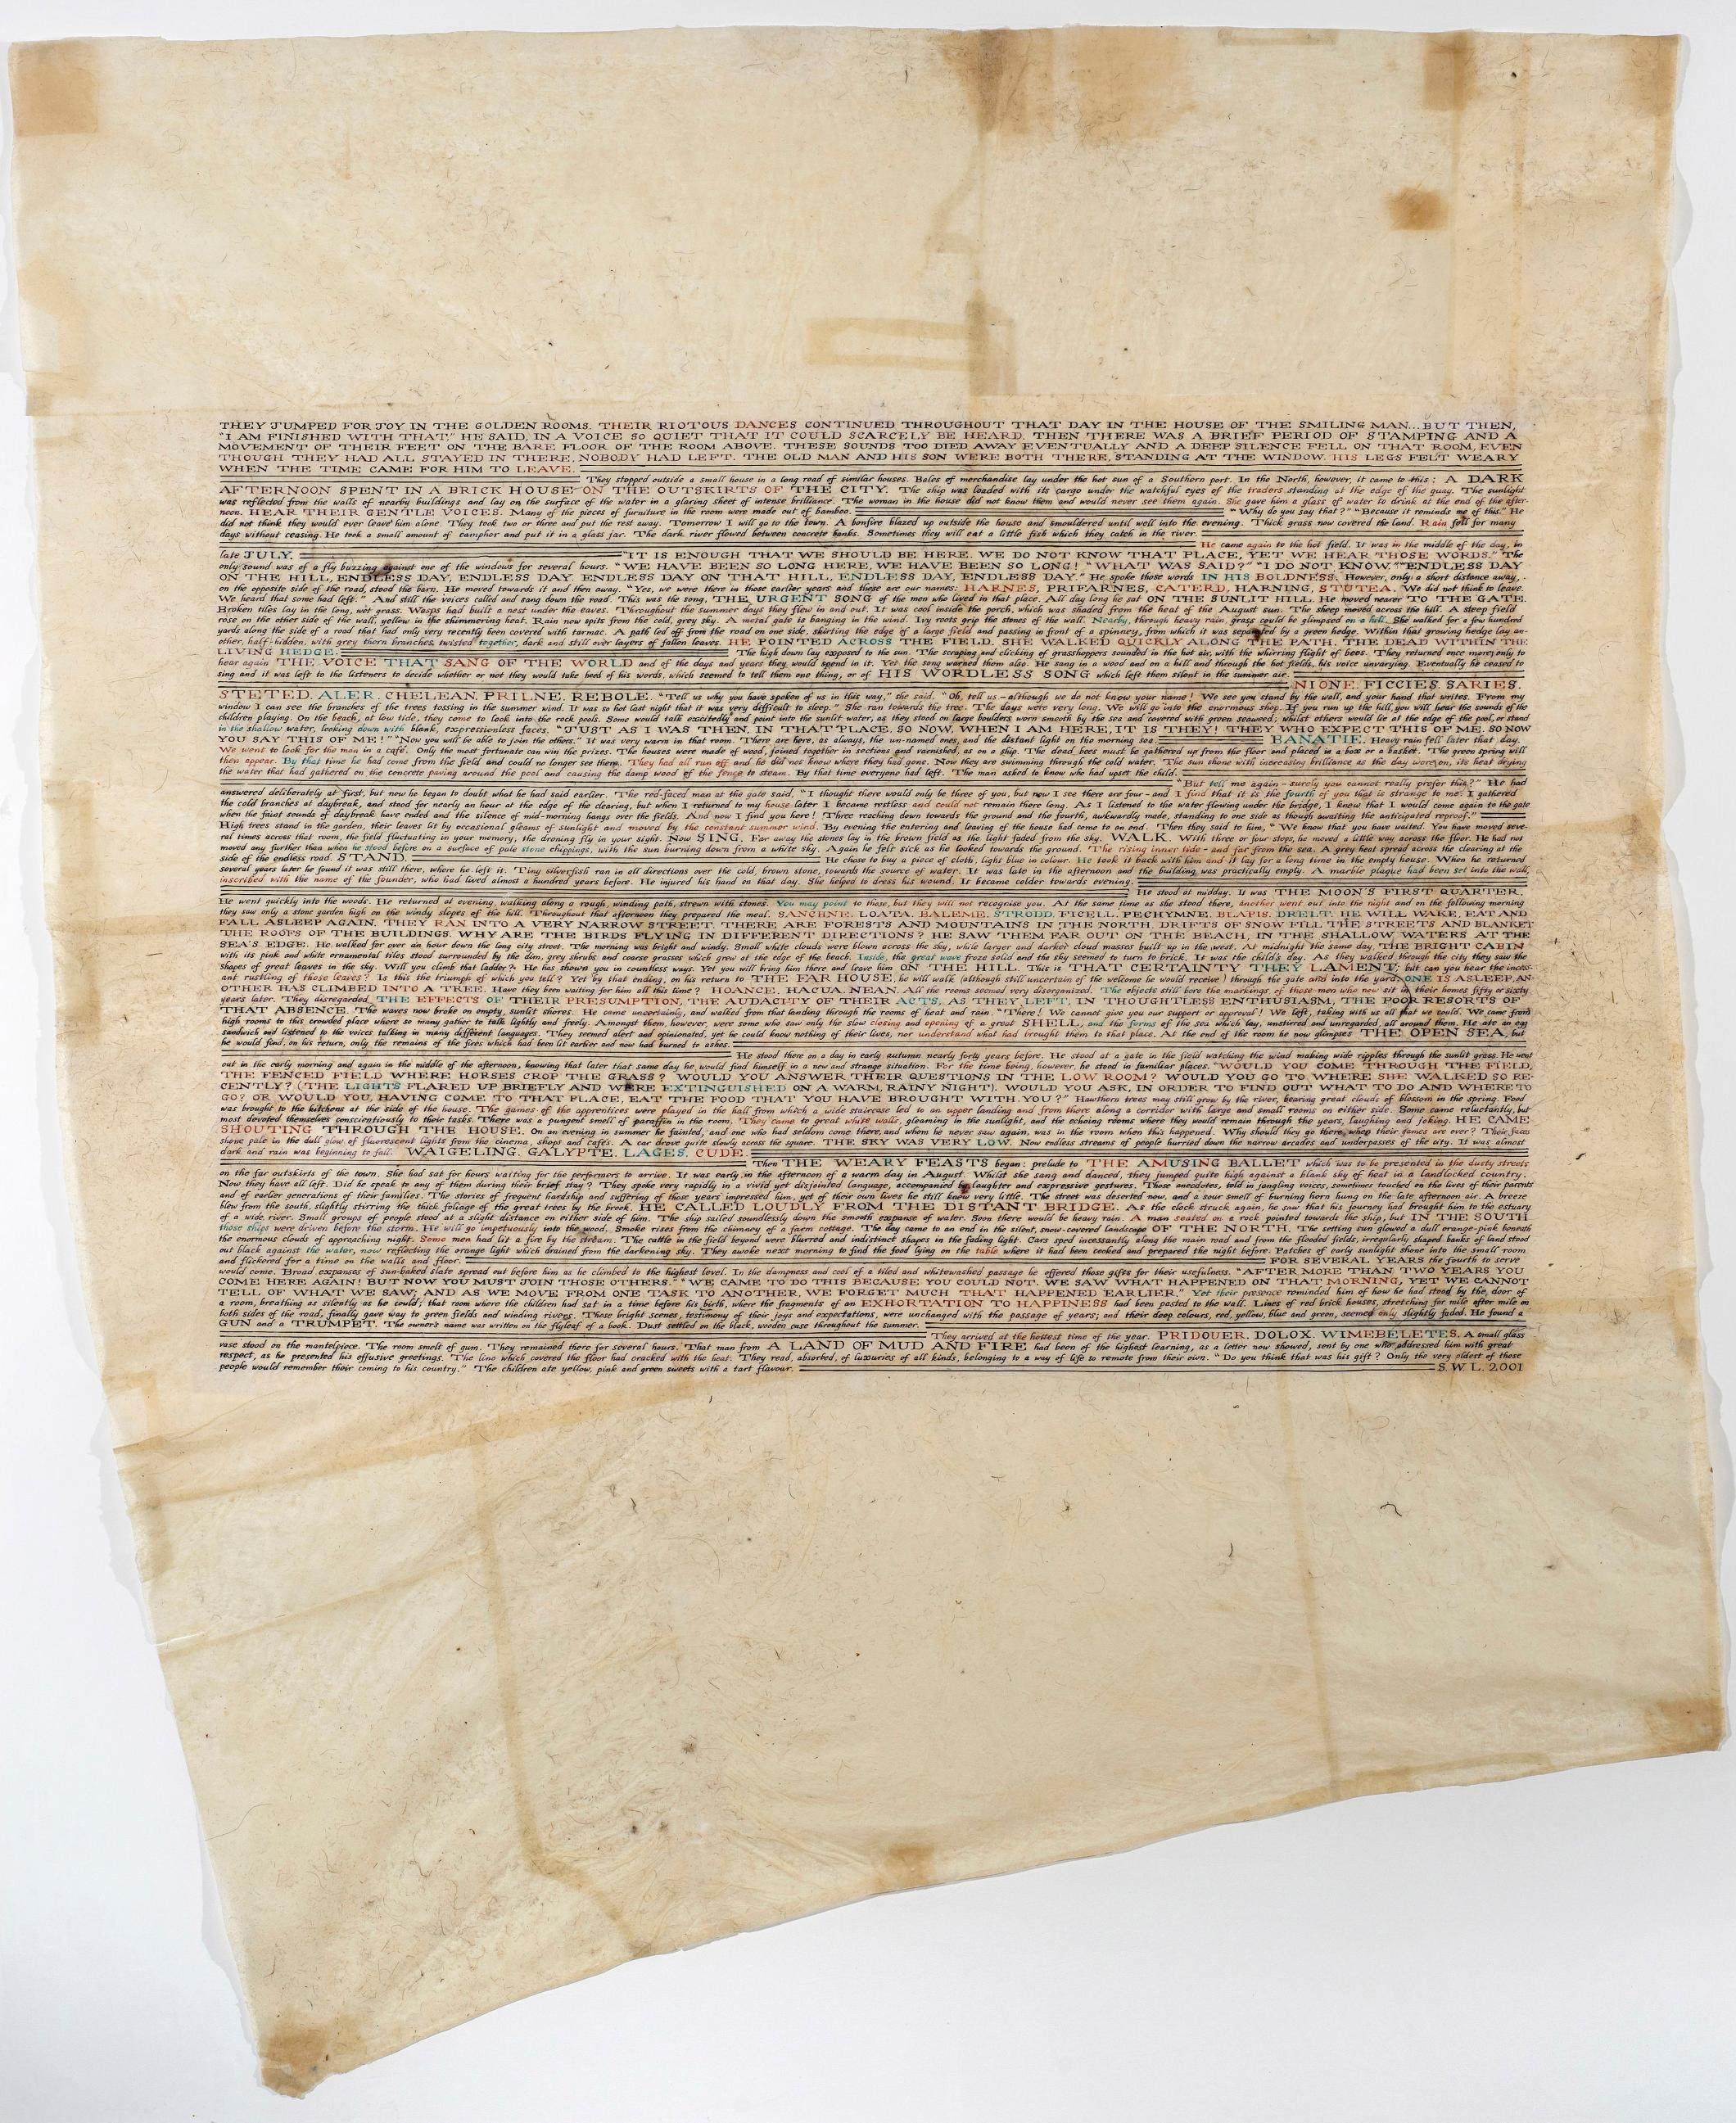 THEY JUMPED FOR JOY IN THE GOLDEN ROOMS. THEIR RIOTOUS DANCES CONTINUED THROUGHOUT THAT DAY IN THE HOUSE OF THE SMILING MAN...BUT THEN,
"I AM FINISHED WITH THAT," HE SAID, IN A VOICE SO QUIET THAT IT COULD SCARCELY BE HEARD. THEN THERE WAS A BRIEF PERIOD OF STAMPING AND A
MOVEMENT OF THEIR FEET ON THE BARE FLOOR OF THE ROOM ABOVE. THESE SOUNDS TOO DIED AWAY EVENTUALLY AND A DEEP SILENCE FELL ON THAT ROOM, EVEN
THOUGH THEY HAD ALL STAYED IN THERE, NOBODY HAD LEFT. THE OLD MAN AND HIS SON WERE BOTH THERE, STANDING AT THE WINDOW. HIS LEGS FELT WEARY
WHEN THE TIME CAME FOR HIM TO LEAVE.
They stopped outside a small house in a long road of similar houses. Bales of merchandise lay under the hot sun of a Southern port. In the North, however, it came to this: A DARK
AFTERNOON SPENT IN A BRICK HOUSE ON THE OUTSKIRTS OF THE CITY. The ship was loaded with its cargo under the watchful eyes of the traders standing at the edge of the quay. The sunlight
was reflected from the walls of nearby buildings and lay on the surface of the water in a glaring sheet of intense brilliance. The woman in the house did not know them and would never see them again. She gave him a glass of water to drink at the end of the after-
noon. HEAR THEIR GENTLE VOICES. Many of the pieces of furniture in the room were made out of bamboo. "Why do you say that?" "Because it reminds me of this." He
did not think they would ever leave him alone. They took two or three and put the rest away. Tomorrow I will go to the town. A bonfire blazed up outside the house and smouldered until well into the evening. Thick grass now covered the land. Rain fell for many
days without ceasing. He took a small amount of camphor and put it in a glass jar. The dark river flowed between concrete banks. Sometimes they will eat a little fish which they catch in the river.
He came again to the hot field. It was in the middle of the day, in
late JULY. "IT IS ENOUGH THAT WE SHOULD BE HERE. WE DO NOT KNOW THAT PLACE, YET WE HEAR THOSE WORDS." The
only sound was of a fly buzzing against one of the windows for several hours. "WE HAVE BEEN SO LONG HERE, WE HAVE BEEN SO LONG! "WHAT WAS SAID?" "I DO NOT KNOW." "ENDLESS DAY
ON THE HILL, ENDLESS DAY, ENDLESS DAY. ENDLESS DAY ON THAT HILL, ENDLESS DAY, ENDLESS DAY." He spoke those words IN HIS BOLDNESS. However, only a short distance away,
on the opposite side of the road, stood the barn. He moved towards it and then away. "Yes, we were there in those earlier years and these are our names: HARNES, PRIFARNES, CATERD, HARNING, STUTEA. We did not think to leave.
We heard that some had left." And still the voices called and sang down the road. This was the song, THE URGENT SONG of the men who lived in that place. All day long he sat ON THE SUNLIT HILL. He moved nearer TO THE GATE.
Broken tiles lay in the long, wet grass. Wasps had built a nest under the eaves. Throughout the summer days they flew in and out. It was cool inside the porch, which was shaded from the heat of the August sun. The sheep moved across the hill. A steep field
rose on the other side of the wall, yellow in the shimmering heat. Rain now spits from the cold, grey sky. A metal gate is banging in the wind. Ivy roots grip the stones of the wall. Nearby, through heavy rain, grass could be glimpsed on a hill. She walked for a few hundred
yards along the side of a road that had only very recently been covered with tarmac. A path led off from the road on one side, skirting the edge of a large field and passing in front of a spinney, from which it was separated by a green hedge. Within that growing hedge lay an-
other, half-hidden, with grey thorn branches, twisted together, dark and still over layers of fallen leaves. HE POINTED ACROSS THE FIELD. SHE WALKED QUICKLY ALONG THE PATH. THE DEAD WITHIN THE
LIVING HEDGE. The high down lay exposed to the sun. The scraping and clicking of grasshoppers sounded in the hot air, with the whirring flight of bees. They returned once more only to
hear again THE VOICE THAT SANG OF THE WORLD and of the days and years they would spend in it. Yet the song warned them also. He sang in a wood and on a hill and through the hot fields, his voice unvarying. Eventually he ceased to
sing and it was left to the listeners to decide whether or not they would take heed of his words, which seemed to tell them one thing, or of HIS WORDLESS SONG which left them silent in the summer air. NIONE. FICCIES. SARIES.
STETED. ALER. CHELEAN. PRILNE. REBOLE. "Tell us why you have spoken of us in this way," she said. "Oh, tell us – although we do not know your name! We see you stand by the wall, and your hand that writes. From my
window I can see the branches of the trees tossing in the summer wind. It was so hot last night that it was very difficult to sleep." She ran towards the tree. The days were very long. We will go into the enormous shop. If you run up the hill, you will hear the sounds of the
children playing. On the beach, at low tide, they come to look into the rock pools. Some would talk excitedly and point into the sunlit water, as they stood on large boulders worn smooth by the sea and covered with green seaweed; whilst others would lie at the edge of the pool, or stand
in the shallow water, looking down with blank, expressionless faces. "JUST AS I WAS THEN, IN THAT PLACE, SO NOW, WHEN I AM HERE, IT IS THEY! THEY WHO EXPECT THIS OF ME. SO NOW
YOU SAY THIS OF ME!" "Now you will be able to join the others." It was very warm in that room. There are here, as always, the un-named ones, and the distant light on the morning sea. BANATIE. Heavy rain fell later that day.
We went to look for the man in a café. Only the most fortunate can win the prizes. The houses were made of wood, joined together in sections and varnished, as on a ship. The dead bees must be gathered up from the floor and placed in a box or a basket. The green spring will
then appear. By that time he had come from the field and could no longer see them. They had all run off and he did not know where they had gone. Now they are swimming through the cold water. The sun shone with increasing brilliance as the day wore on, its heat drying
the water that had gathered on the concrete paving around the pool and causing the damp wood of the fence to steam. By that time everyone had left. The man asked to know who had upset the child.
"But tell me again – surely you cannot really prefer this?" He had
answered deliberately at first, but now he began to doubt what he had said earlier. The red-faced man at the gate said, "I thought there would only be three of you, but now I see there are four – and I find that it is the fourth of you that is strange to me. I gathered
the cold branches at daybreak, and stood for nearly an hour at the edge of the clearing, but when I returned to my house later I became restless and could not remain there long. As I listened to the water flowing under the bridge, I knew that I would come again to the gate
when the faint sounds of daybreak have ended and the silence of mid-morning hangs over the fields. And now I find you here! Three reaching down towards the ground and the fourth, awkwardly made, standing to one side as though awaiting the anticipated reproof."
High trees stand in the garden, their leaves lit by occasional gleams of sunlight and moved by the constant summer wind. By evening the entering and leaving of the house had come to an end. Then they said to him, "We know that you have waited. You have moved seve-
ral times across that room, the field fluctuating in your memory, the droning fly in your sight. Now SING. Far away the stones lay in the brown field as the light faded from the sky. WALK. With three or four steps, he moved a little way across the floor. He had not
moved any further than when he stood before on a surface of pale stone chippings, with the sun burning down from a white sky. Again he felt sick as he looked towards the ground. The rising inner tide – and far from the sea. A grey heat spread across the clearing at the
side of the endless road. STAND. He chose to buy a piece of cloth, light blue in colour. He took it back with him and it lay for a long time in the empty house. When he returned
several years later he found it was still there, where he left it. Tiny silverfish ran in all directions over the cold, brown stone, towards the source of water. It was late in the afternoon and the building was practically empty. A marble plaque had been set into the wall,
inscribed with the name of the founder, who had lived almost a hundred years before. He injured his hand on that day. She helped to dress his wound. It became colder towards evening.
He stood at midday. It was THE MOON'S FIRST QUARTER.
He went quickly into the woods. He returned at evening, walking along a rough, winding path, strewn with stones. You may point to those, but they will not recognise you. At the same time as she stood there, another went out into the night and on the following morning
they saw only a stone garden high on the windy slopes of the hill. Throughout that afternoon they prepared the meal. SANCHNE. LOATA. BALEME. STRODD. FICELL. PECHYMNE. BLAPIS. DRELT. HE WILL WAKE, EAT AND
FALL ASLEEP AGAIN. THEY RAN INTO A VERY NARROW STREET. THERE ARE FORESTS AND MOUNTAINS IN THE NORTH. DRIFTS OF SNOW FILL THE STREETS AND BLANKET
THE ROOFS OF THE BUILDINGS. WHY ARE THE BIRDS FLYING IN DIFFERENT DIRECTIONS? HE SAW THEM FAR OUT ON THE BEACH, IN THE SHALLOW WATERS AT THE
SEA'S EDGE. He walked for over an hour down the long city street. The morning was bright and windy. Small white clouds were blown across the sky, while larger and darker cloud masses built up in the west. At midnight the same day, THE BRIGHT CABIN
with its pink and white ornamental tiles stood surrounded by the dim, grey shrubs and coarse grasses which grew at the edge of the beach. Inside, the great wave froze solid and the sky seemed to turn to brick. It was the child's day. As they walked through the city they saw the
shapes of great leaves in the sky. Will you climb that ladder? He has shown you in countless ways. Yet you will bring him there and leave him ON THE HILL. This is THAT CERTAINTY THEY LAMENT; but can you hear the incess-
ant rustling of those leaves? Is this the triumph of which you tell? Yet by that ending, on his return to THE FAR HOUSE, he will walk (although still uncertain of the welcome he would receive) through the gate and into the yard. ONE IS ASLEEP. AN-
OTHER HAS CLIMBED INTO A TREE. Have they been waiting for him all this time? HOANCE. HACUA. NEAN. All the rooms seemed very disorganized. The objects still bore the markings of those men who now sit in their homes fifty or sixty
years later. They disregarded THE EFFECTS OF THEIR PRESUMPTION, THE AUDACITY OF THEIR ACTS, AS THEY LEFT, IN THOUGHTLESS ENTHUSIASM, THE POOR RESORTS OF
THAT ABSENCE. The waves now broke on empty, sunlit shores. He came uncertainly, and walked from that landing through the rooms of heat and rain. "There! We cannot give you our support or approval! We left, taking with us all that we could. We came from
high rooms to this crowded place where so many gather to talk lightly and freely. Amongst them, however, were some who saw only the slow closing and opening of a great SHELL, and the forms of the sea which lay, unstirred and unregarded, all around them. He ate an egg
sandwich and listened to the voices talking in many different languages. They seemed alert and opinionated, yet he could know nothing of their lives, nor understand what had brought them to that place. At the end of the room he now glimpses THE OPEN SEA, but
he would find, on his return, only the remains of the fires which had been lit earlier and now had burned to ashes.
He stood there on a day in early autumn nearly forty years before. He stood at a gate in the field watching the wind making wide ripples through the sunlit grass. He went
out in the early morning and again in the middle of the afternoon, knowing that later that same day he would find himself in a new and strange situation. For the time being, however, he stood in familiar places. "WOULD YOU COME THROUGH THE FIELD,
THE FENCED FIELD WHERE HORSES CROP THE GRASS? WOULD YOU ANSWER THEIR QUESTIONS IN THE LOW ROOM? WOULD YOU GO TO WHERE SHE WALKED SO RE-
CENTLY? (THE LIGHTS FLARED UP BRIEFLY AND WERE EXTINGUISHED ON A WARM, RAINY NIGHT). WOULD YOU ASK, IN ORDER TO FIND OUT WHAT TO DO AND WHERE TO
GO? OR WOULD YOU, HAVING COME TO THAT PLACE, EAT THE FOOD THAT YOU HAVE BROUGHT WITH YOU?" Hawthorn trees may still grow by the river, bearing great clouds of blossom in the spring. Food
was brought to the kitchens at the side of the house. The games of the apprentices were played in the hall from which a wide staircase led to an upper landing and from there along a corridor with large and small rooms on either side. Some came reluctantly, but
most devoted themselves conscientiously to their tasks. There was a pungent smell of paraffin in the room. They came to great white walls, gleaming in the sunlight, and the echoing rooms where they would remain through the years, laughing and joking. HE CAME
SHOUTING THROUGH THE HOUSE. On an evening in summer he fainted, and one who had seldom come there, and whom he never saw again, was in the room when this happened. Why should they go there, when their games are over? Their faces
shone pale in the dull glow of fluorescent lights from the cinema, shops and cafés. A car drove quite slowly across the square. THE SKY WAS VERY LOW. Now endless streams of people hurried down the narrow arcades and underpasses of the city. It was almost
dark and rain was beginning to fall. WAIGELING. GALYPTE. LAGES. CUDE.
Then THE WEARY FEASTS began: prelude to THE AMUSING BALLET which was to be presented in the dusty streets
on the far outskirts of the town. She had sat for hours waiting for the performers to arrive. It was early in the afternoon of a warm day in August. Whilst she sang and danced, they jumped quite high against a blank sky of heat in a landlocked country.
Now they have all left. Did he speak to any of them during their brief stay? They spoke very rapidly in a vivid yet disjointed language, accompanied by laughter and expressive gestures. Those anecdotes, told in jangling voices, sometimes touched on the lives of their parents
and of earlier generations of their families. The stories of frequent hardship and suffering of those years impressed him, yet of their own lives he still knew very little. The street was deserted now, and a sour smell of burning horn hung on the late afternoon air. A breeze
blew from the south, slightly stirring the thick foliage of the great trees by the brook. HE CALLED LOUDLY FROM THE DISTANT BRIDGE. As the clock struck again, he saw that his journey had brought him to the estuary
of a wide river. Small groups of people stood at a slight distance on either side of him. The ship sailed soundlessly down the smooth expanse of water. Soon there would be heavy rain. A man seated on a rock pointed towards the ship, but IN THE SOUTH
those ships were driven before the storm. He will go impetuously into the wood. Smoke rises from the chimney of a farm cottage. The day came to an end in the silent, snow-covered landscape OF THE NORTH. The setting sun glowed a dull orange-pink beneath
the enormous clouds of approaching night. Some men had lit a fire by the stream. The cattle in the field beyond were blurred and indistinct shapes in the fading light. Cars sped incessantly along the main road and from the flooded fields, irregularly shaped banks of land stood
out black against the water, now reflecting the orange light which drained from the darkening sky. They awoke next morning to find the food lying on the table where it had been cooked and prepared the night before. Patches of early sunlight shone into the small room
and flickered for a time on the walls and floor. FOR SEVERAL YEARS the fourth to serve
would come. Broad expanses of sun-baked slate spread out before him as he climbed to the highest level. In the dampness and cool of a tiled and whitewashed passage he offered those gifts for their usefulness. "AFTER MORE THAN TWO YEARS YOU
COME HERE AGAIN! BUT NOW YOU MUST JOIN THOSE OTHERS." "WE CAME TO DO THIS BECAUSE YOU COULD NOT. WE SAW WHAT HAPPENED ON THAT MORNING, YET WE CANNOT
TELL OF WHAT WE SAW; AND AS WE MOVE FROM ONE TASK TO ANOTHER, WE FORGET MUCH THAT HAPPENED EARLIER." Yet their presence reminded him of how he had stood by the door of
a room, breathing as silently as he could; that room where the children had sat in a time before his birth, where the fragments of an EXHORTATION TO HAPPINESS had been pasted to the wall. Lines of red brick houses, stretching for mile after mile on
both sides of the road, finally gave way to green fields and winding rivers. Those bright scenes, testimony of their joys and expectations, were unchanged with the passage of years; and their deep colours, red, yellow, blue and green, seemed only slightly faded. He found a
GUN and a TRUMPET. The owner's name was written on the flyleaf of a book. Dust settled on the black, wooden case throughout the summer.
They arrived at the hottest time of the year. PRIDOUER. DOLOX. WIMEBELETES. A small glass
vase stood on the mantelpiece. The room smelt of gum. They remained there for several hours. That man from A LAND OF MUD AND FIRE had been of the highest learning, as a letter now showed, sent by one who addressed him with great
respect, as he presented his effusive greetings. The lino which covered the floor had cracked with the heat. They read, absorbed, of luxuries of all kinds, belonging to a way of life so remote from their own. "Do you think that was his gift? Only the very oldest of those
people would remember their coming to his country." The children ate yellow, pink and green sweets with a tart flavour. S.W.L. 2001